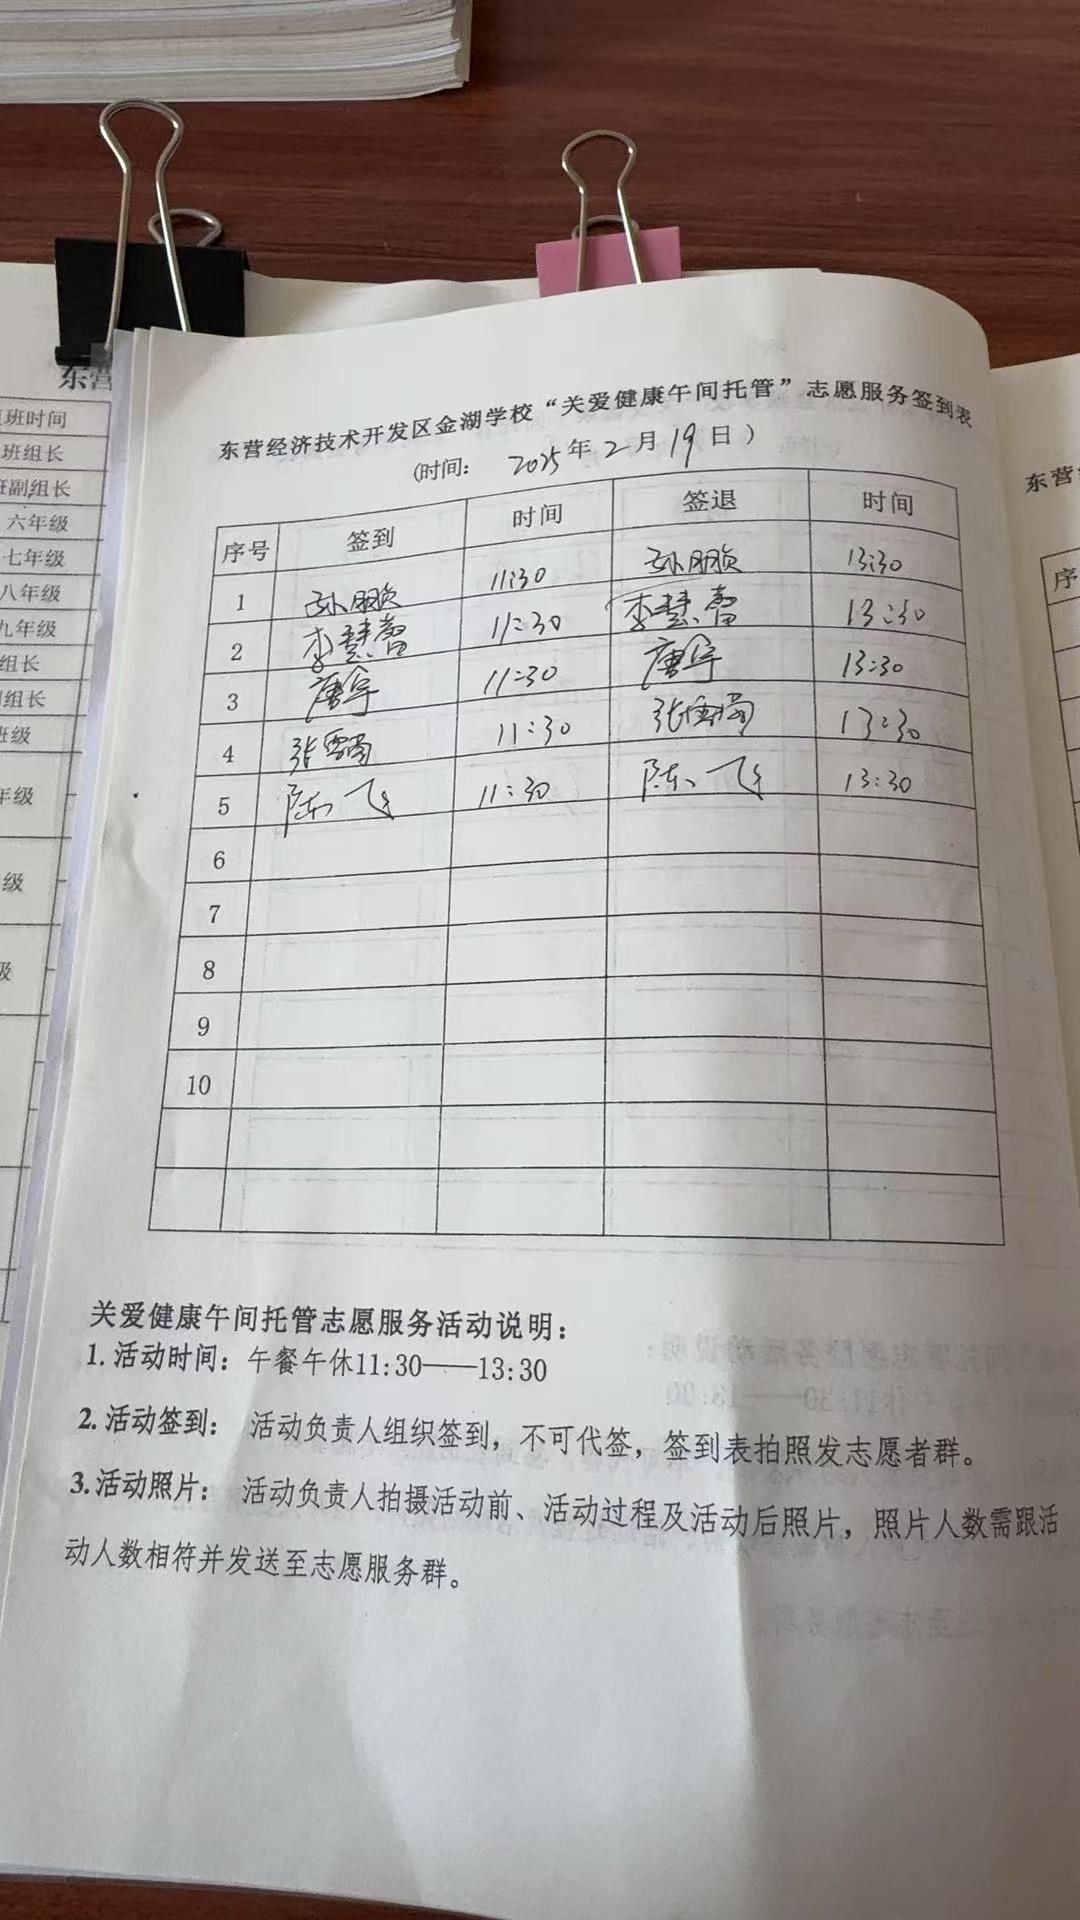 东营
班时间
班组长
班副组长
六年级
七年级
八年级
九年级
组长
组长
班级
年级
级
级
东营经济技术开发区金湖学校“关爱健康午间托管”志愿服务签到表
(时间: 2025年2月19日)
序号 签到 时间 签退 时间
1 孙鹏 11:30 孙鹏 13:30
2 李慧蕾 11:30 李慧蕾 13:30
3 唐宇 11:30 唐宇 13:30
4 张 11:30 张 13:30
5 陈飞 11:30 陈飞 13:30
6
7
8
9
10
关爱健康午间托管志愿服务活动说明:
1.活动时间:午餐午休11:30——13:30
2.活动签到: 活动负责人组织签到,不可代签,签到表拍照发志愿者群。
3.活动照片: 活动负责人拍摄活动前、活动过程及活动后照片,照片人数需跟活
动人数相符并发送至志愿服务群。
东营
序